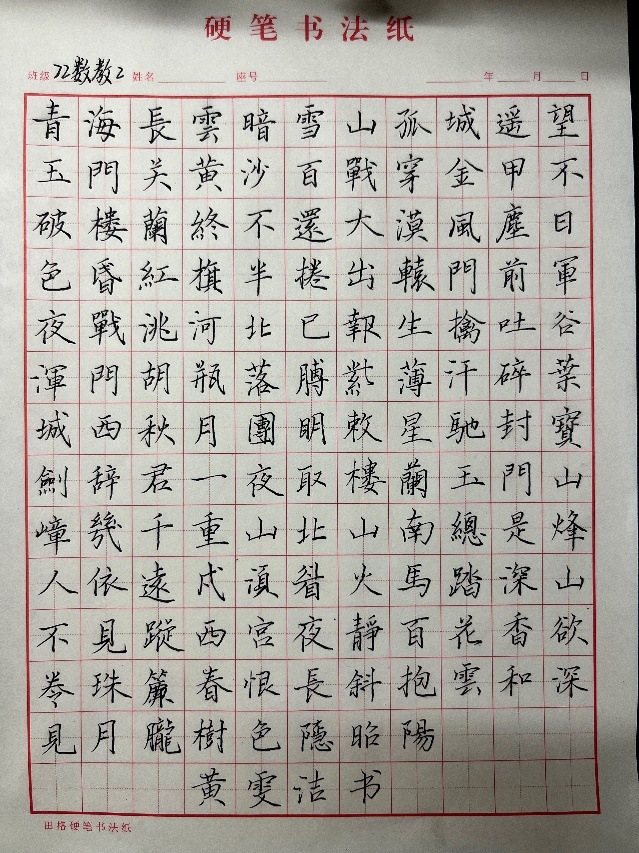 硬笔书法纸
班级 22数教2 姓名 座号 年 月 日
青海長雲暗雪山孤城遥望
玉門关黄沙百戰穿金甲不
破楼蘭終不還大漠風塵日
色昏紅旗半捲出轅門前軍
夜戰洮河北已報生擒吐谷
渾門胡瓶落膊紫薄汗碎葉
城西秋月團明敕星馳封寶
劍辞君一夜取樓蘭玉門山
嶂幾千重山北山南總是烽
人依遠戍湏看火馬踏深山
不見蹤西宮夜靜百花香欲
卷珠簾春恨長斜抱雲和深
見月朧樹色隱昭陽
黄雯洁书
田格硬笔书法纸